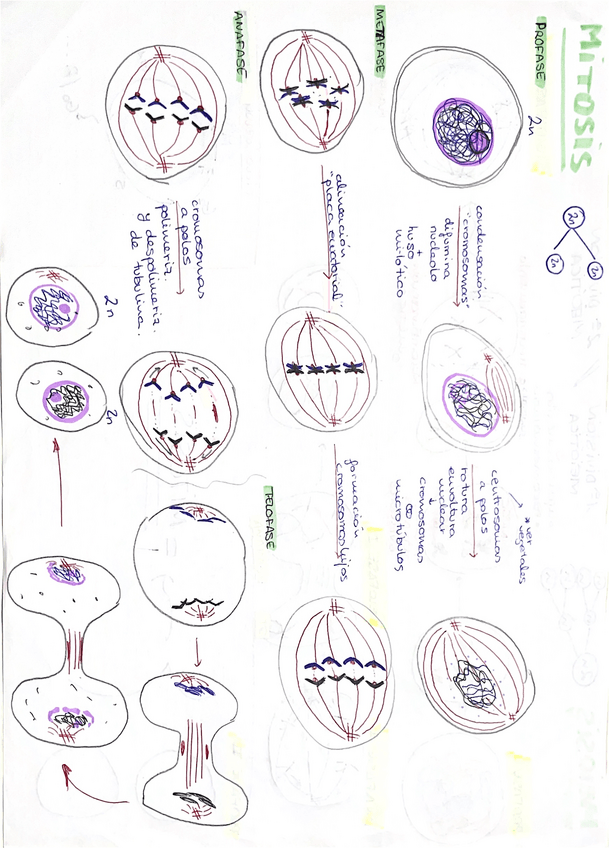 MITOSIS
2n
2n
2n
PROFASE
2n
condensación
"cromosomas"
difumina
nucleolo
+
huso
mitótico
* ver
vegetales
centrosomas
a polos
rotura
envoltura
nuclear
+
cromosomas
∞
microtúbulos
METAFASE
alineación
"placa ecuatorial"
formación
cromosomas hijos
ANAFASE
cromosomas
a polos
polimeriz.
y despolimeriz.
de tubulina.
TELOFASE
2n
2n